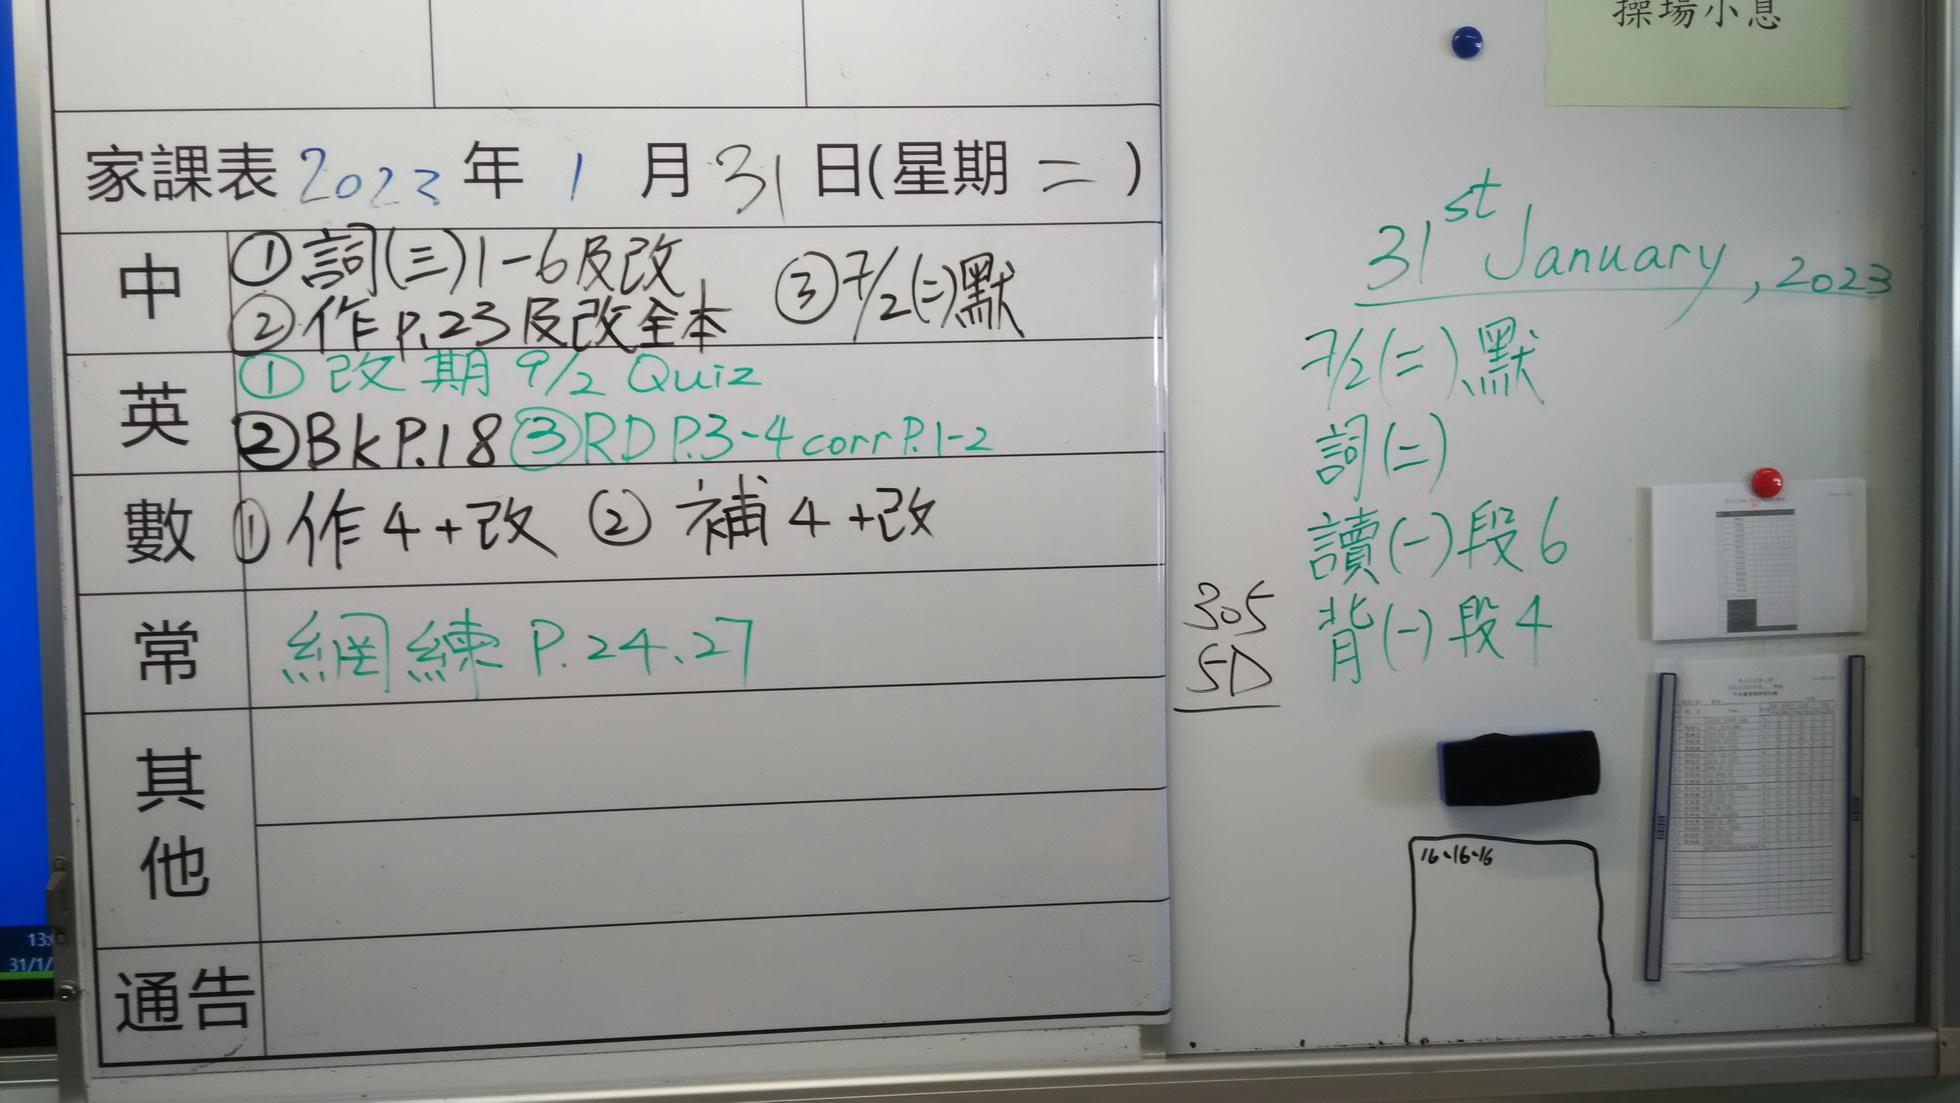 操場小息
家課表 2023 年 1 月 31 日(星期 二 )
中
① 詞(三)1-6及改
② 作 p.23 及改全本
③ 7/2(二)默
英
① 改期 9/2 Quiz
② Bk P.18 ③ RD P.3-4 corr P.1-2
數
① 作 4 + 改 ② 補 4 + 改
常
網練 P.24、27
其他
通告
31st January, 2023
7/2(二)、默
詞(二)
讀(一)段6
背(一)段4
305
5D
16、16、16
31/1/